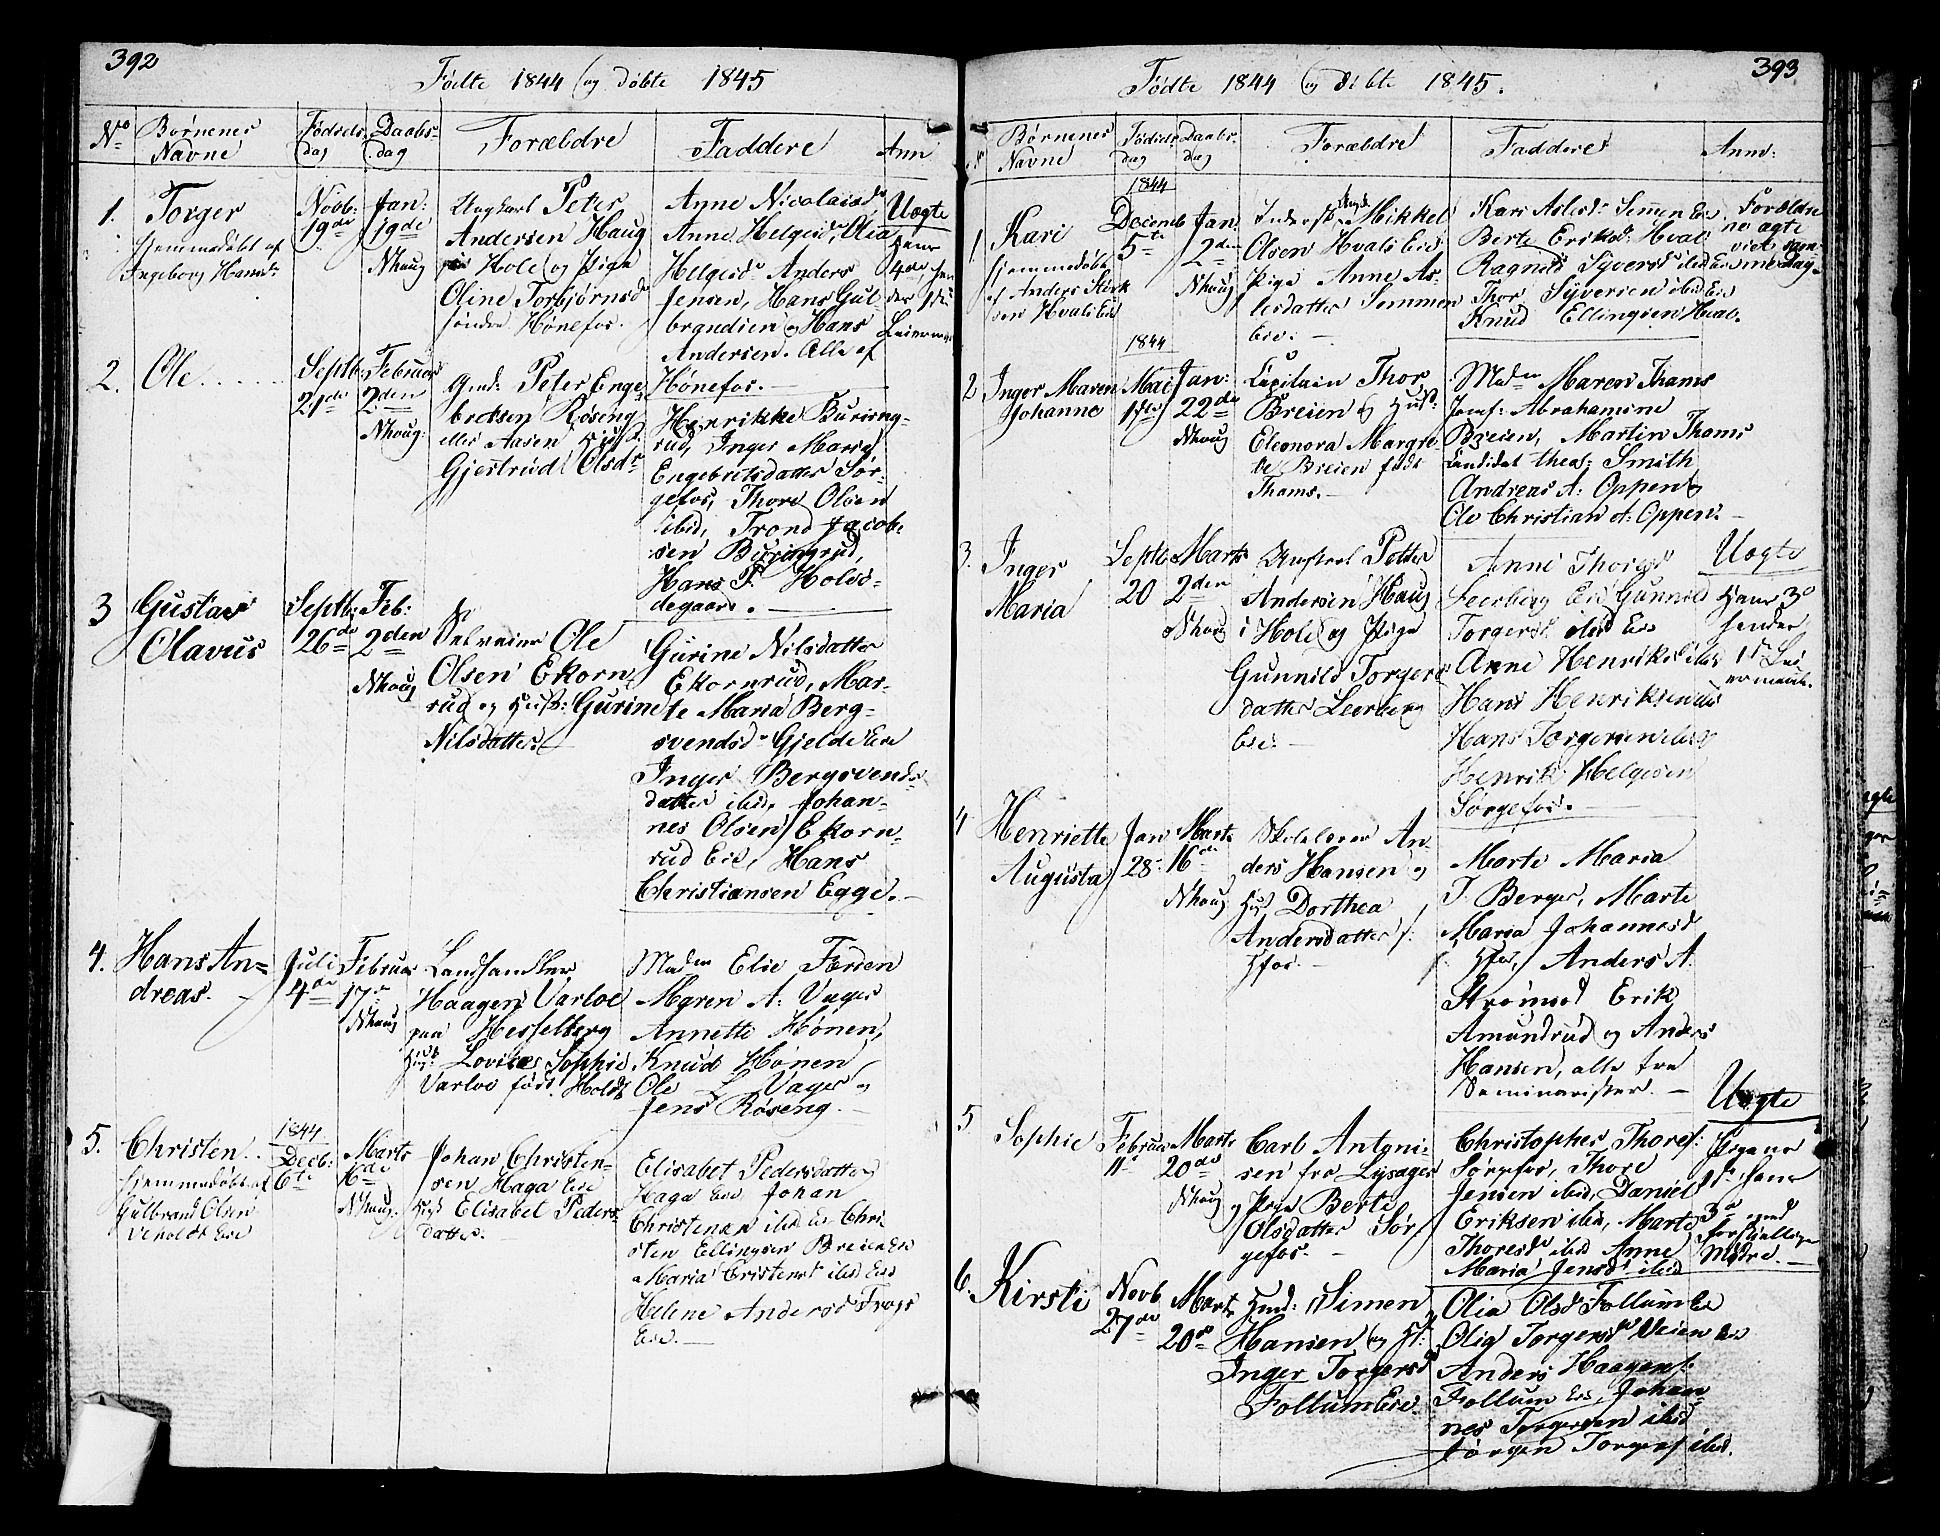 392
Fødte 1844 og døbte 1845
No
Børnenes
Navne
Fødsels
dag
Daabs-
dag
Forældre
Faddere
Ann
1.
Torger
hjemmedøbt af
Ingeborg Hansd.
Novb:
19de
Jan:
19de
Nhoug
Ungkarl Peter
Andersen Haug
paa Hole og Pige
Oline Torbjørnsd
søndre Hønefos.
Anne Nicolaisd,
Anne Helgesd, Olia
Helgesd Anders
Jensen, Hans Gul
brandsen og Hans
Andersen. Alle af
Hønefos.
Uægte
Hans
4de, hen
des 1ste
Leiermaal
2.
Ole
Septb:
21de
Februar
2den
Nhoug.
Gmd: Peter Enge
bretsen Røseng
eller Aasen Hust.
Gjertrud Olsdr
Henrikke Buring-
rud, Inger Marie
Engebretsdatter Sør-
gefos, Thore Olsen
ibid, Trond Jacob-
sen Buringrud,
Hans P. Holds-
degaard.
3
Gustav
Olavus
Septb:
26de
Feb:
2den
Nhoug
Selveier Ole
Olsen Ekorn
rud og Hust: Gurine
Nilsdatter
Gurine Nilsdatter
Ekornrud, Mar-
te Maria Berg-
svendsd Gjelde Eie
Inger Bergsvends
datter ibid, Johan-
nes Olsen Ekorn-
rud Eie, Hans
Christiansen Egge.
4.
Hans An=
dreas.
Juli
4de
Februar
17de
Nhoug
Landhandler
Haagen Varloe
paa Hesselberg
Hust: Lovise Sophie
Varloe født Holdt
Madm Elie Færden
Maren A: Vager
Annette Hønen,
Knud Hønen
Ole L Vager og
Jens Røseng.
5.
Christen
hjemmedøbt af
Gulbrand Olsen
Veholdt Eie
1844
Decb:
6te
Marts
16de
Nhoug.
Johan Christen-
sen Haga Eie
Hust Elisabet Peders-
datter.
Elisabet Pedersdatter
Haga Eie Johan
Christensen ibid Eie Chri
sten Ellingsen Breien Eie
Maria Cristensd ibid Eie
Helene Andersd Frogs
Eie.
393
Fødte 1844 og døbte 1845.
N
Børnenes
Navne
Fødsels
dag
Daabs-
dag
Forældre
Faddere
Anm:
1
Kari
hjemmedøbt
af Anders Støvk
sen Hvals Eie
1844
Decemb
5te
Jan:
2den
Nhoug
Inderst Mikkel
Olsen Hvals Eie
Pige Anne As-
lesdatter Semmen
Eie.
Kari Aslesd: Semmen Eie
Berte Eriksd: Hval
Ragnild Syversd ibid Eie
Thor Syversen ibid Eie
Knud Ellingsen Hval.
Forældre
ne ægte
viet sam-
me Dag
2
Inger Maren
Johanne
1844
Mai
17de
Jan:
22de
Nhoug
Capitain Thor
Breien og Hust:
Eleonora Margre
te Breien født
Thams.
Madm Maren Thams
Jomf: Abrahamine
Breien, Martin Thams
Candidat theol: Smith
Andreas A: Oppen
Ole Christian A: Oppen.
3.
Inger
Maria
Septb
20
Marts
2den
Nhoug
Ungkarl Petter
Andersen Haug
i Hole og Pige
Gunnild Torgers
datter Leerberg
Eie.
Anne Thorgsd
Leerberg Eie Gunnild
Torgersd ibid Eie
Anne Henriksd ibid
Hans Henriksen
Hans Torgersen ibid
Henrik Helgesen
Sørgefos.
Uægte
Hans 3de
hendes
1ste Lei
ermaal.
4
Henriette
Augusta
Jan
28
Marts
16de
Nhoug
Skolelærer An
ders Hansen og
Hust Dorthea
Andersdatter
Hfos.
Marte Maria
T. Berger, Marte
Maria Johannesd
Hfos, Anders A.
Strømsod Erik
Amundrud og Anders
Hansen, alle tre
Seminarister.
5
Sophie
Februar
11te
Marts
20de
Nhoug
Carl Antoni-
sen fra Lysager
og Pige Berte
Olsdatter Sør
gefos.
Christopher Thores:
Sørgefos, Thore
Jensen ibid, Daniel
Eriksen ibid, Marte
Thoresd ibid Anne
Maria Jensd ibid
Uægte
1ste hans
3de med
forskjellige
Mødre.
6.
Kirsti
Novb
27de
Marts
20de
Hmd: Simen
Hansen og H:
Inger Torgersd
Follum Eie.
Olia Olsd Follum Eie
Olia Torgersd Veien Eie
Anders Haagens:
Follum Eie, Johan
nes Torgersen ibid
Jørgen Torgers ibid.